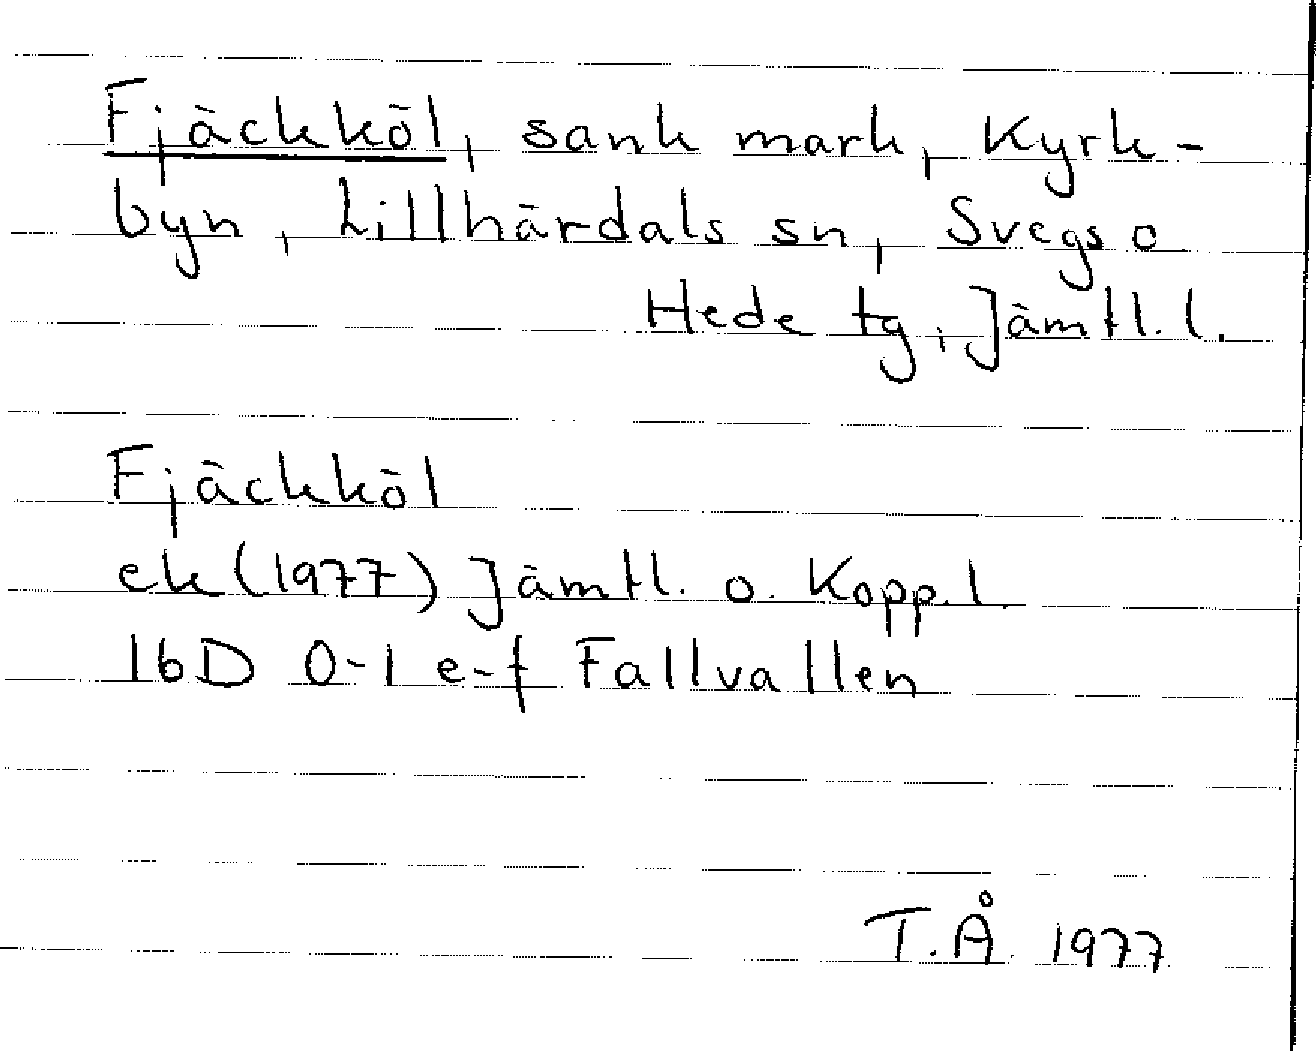 Fjäckköl, sank mark, Kyrk-
byn, Lillhärdals sn, Svegs o
Hede tg, Jämtl. l.
Fjäckköl
ek (1977) Jämtl. o. Kopp. l.
16D 0-1 e-f Fallvallen
T.Å. 1977